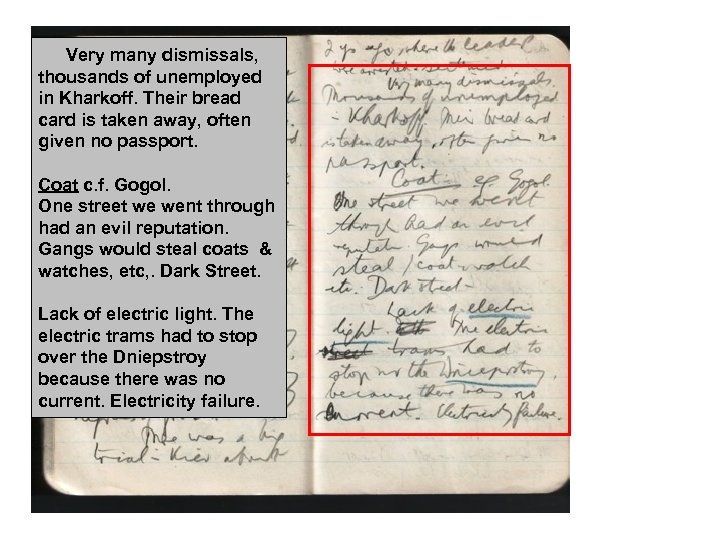 Very many dismissals,
thousands of unemployed
in Kharkoff. Their bread
card is taken away, often
given no passport.
Coat c. f. Gogol.
One street we went through
had an evil reputation.
Gangs would steal coats &
watches, etc,. Dark Street.
Lack of electric light. The
electric trams had to stop
over the Dniepstroy
because there was no
current. Electricity failure.
There was a big
trial - Kiev about
2 yrs ago, where the leaders
were arrested & sentenced
Very many dismissals.
Thousands of unemployed
in Kharkoff. Their bread card
is taken away, often given no
passport.
Coat c.f. Gogol.
One street we went
through had an evil
reputation. Gangs would
steal coats watch
etc. Dark street -
Lack of electric
light. The electric
trams had to
stop on the Dnieprostroy,
because there was no
current. Electricity failure.